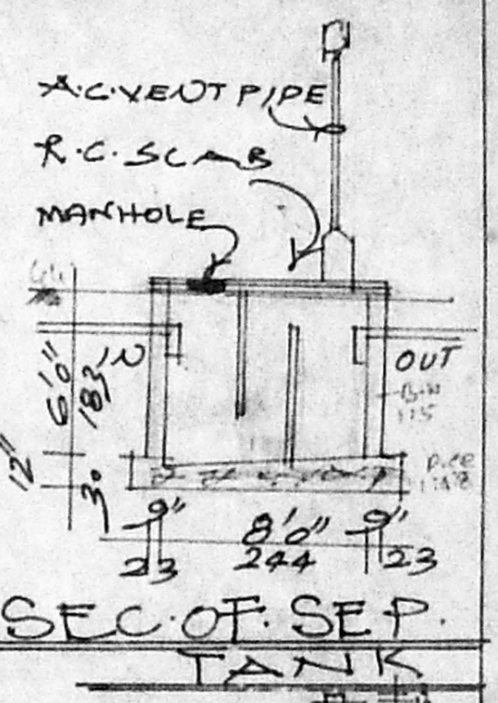 A.C.VENT PIPE
R.C.SLAB
MANHOLE
IN
OUT
6'0"
183
12"
30
9"
8'0"
9"
23
244
23
SEC.OF.SEP.
TANK